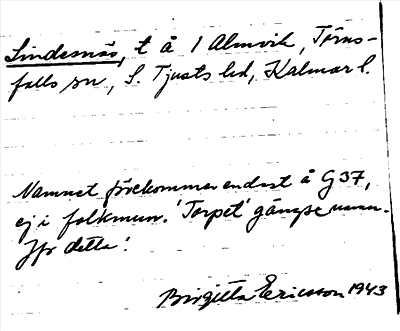 Lindesnäs, t å 1 Almvik, Törns-
falls sn, S. Tjusts hd, Kalmar l.
Namnet förekommer endast å G37,
ej i folkmun. 'Torpet' gängse namn.
Jfr detta!
Birgitta Ericsson 1943